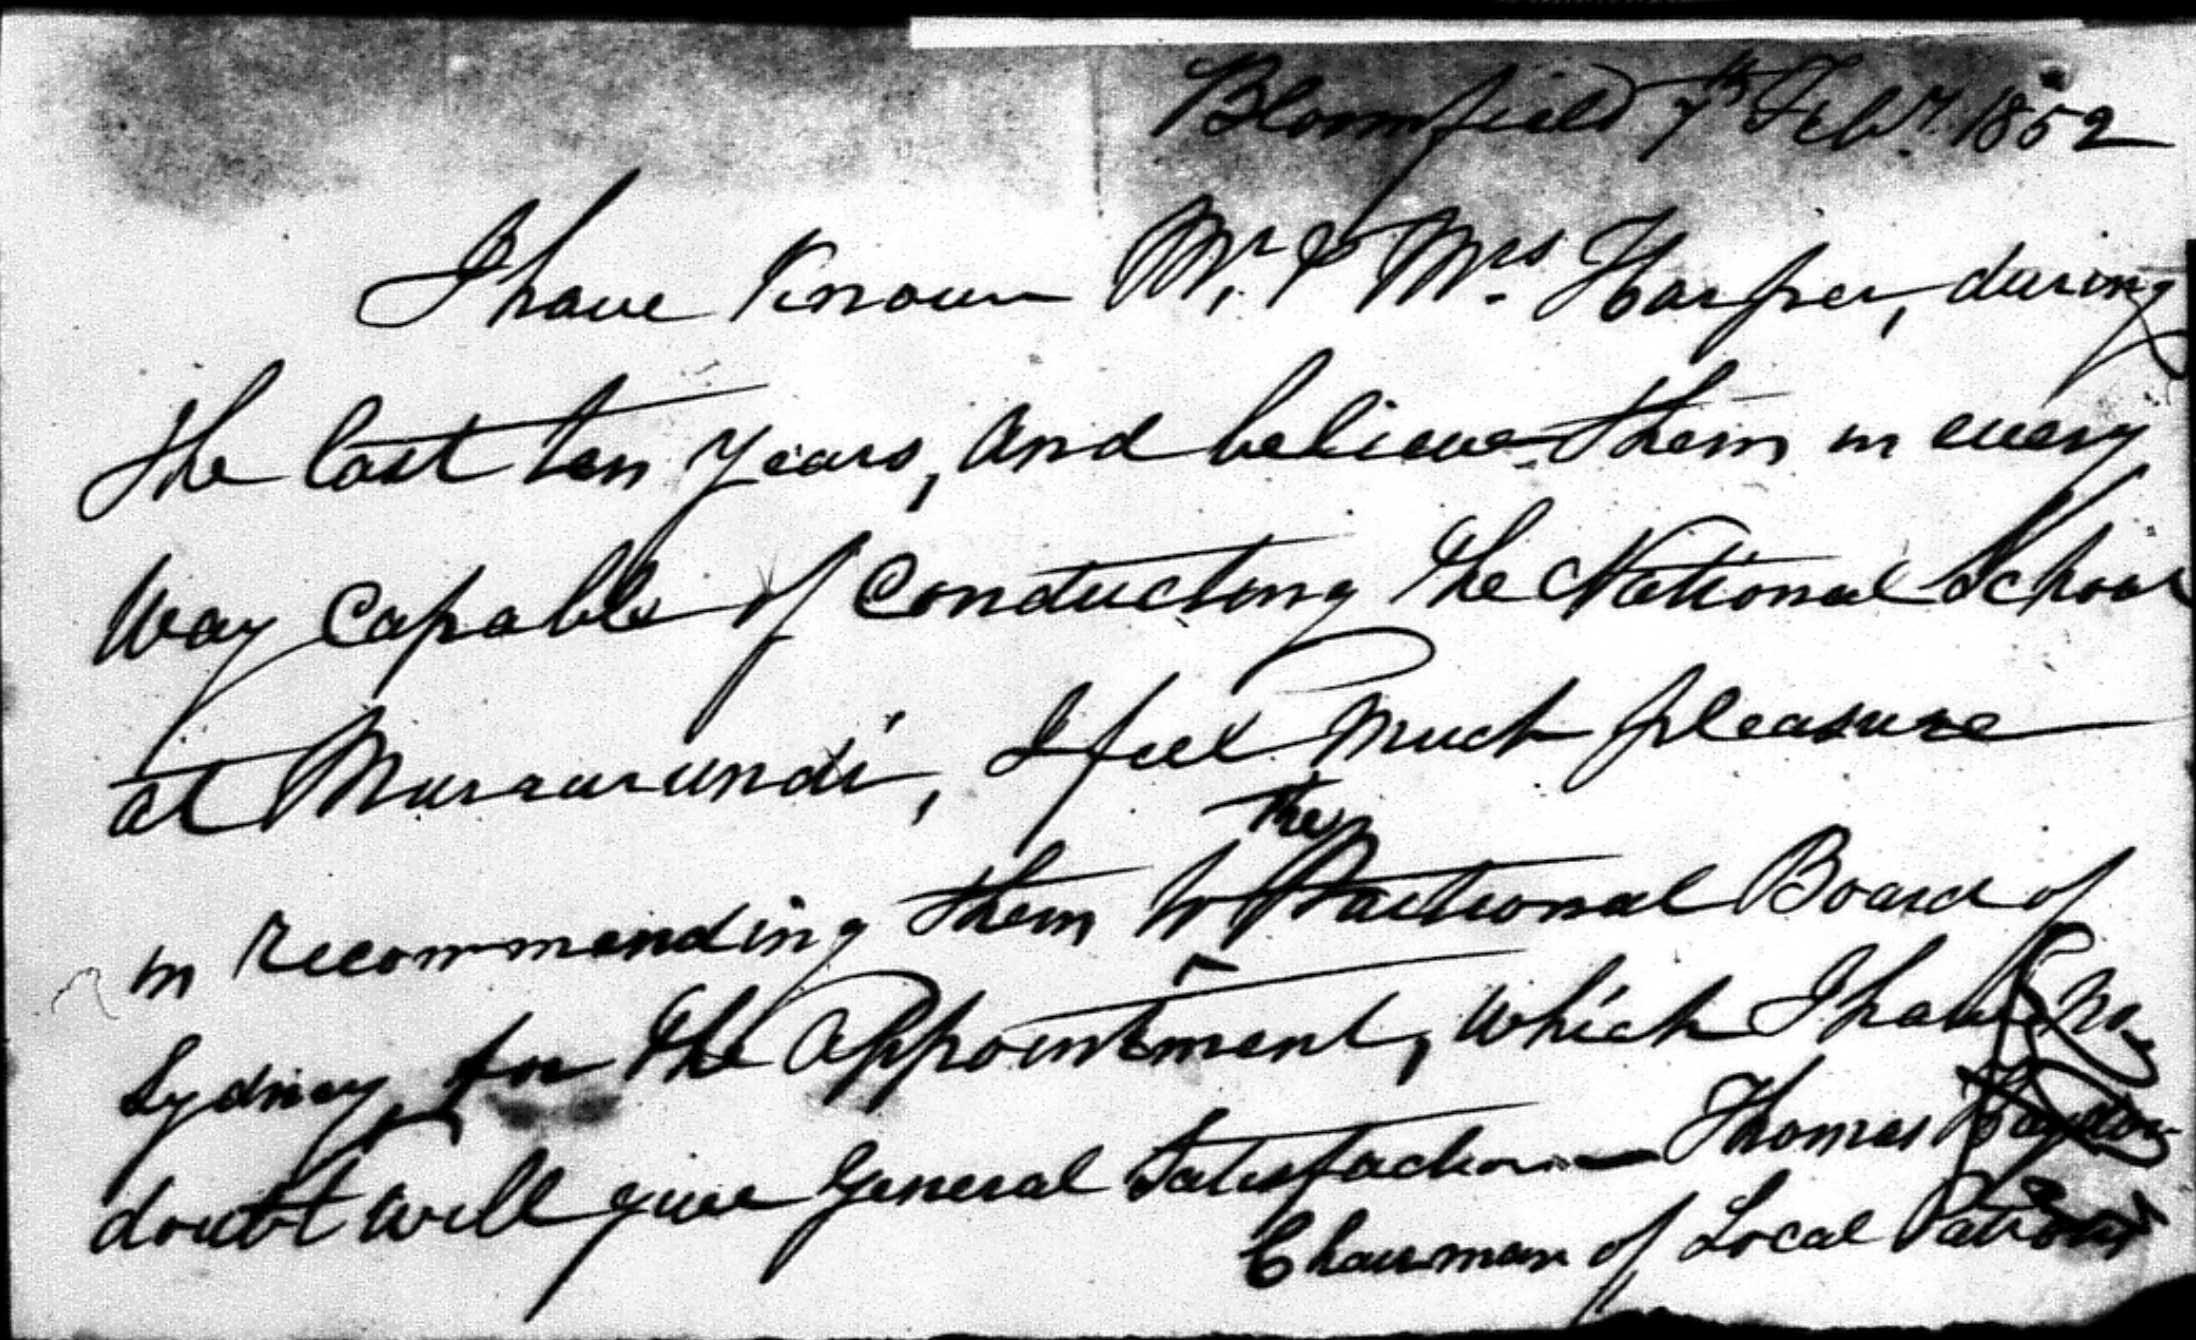 Bloomfield 7th Feby. 1852
I have Known Mr. & Mrs. Harper, during
the last ten Years, and believe them in every
Way Capable of Conducting the National School
at Murrurundi, I feel Much pleasure
in recommending them to the National Board of
Sydney for the Appointment, which I have no
doubt will give General Satisfaction — Thomas Haydon
Chairman of Local Patrons